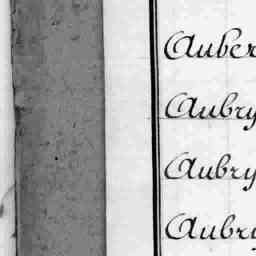 Auber
Aubry
Aubry
Aubry